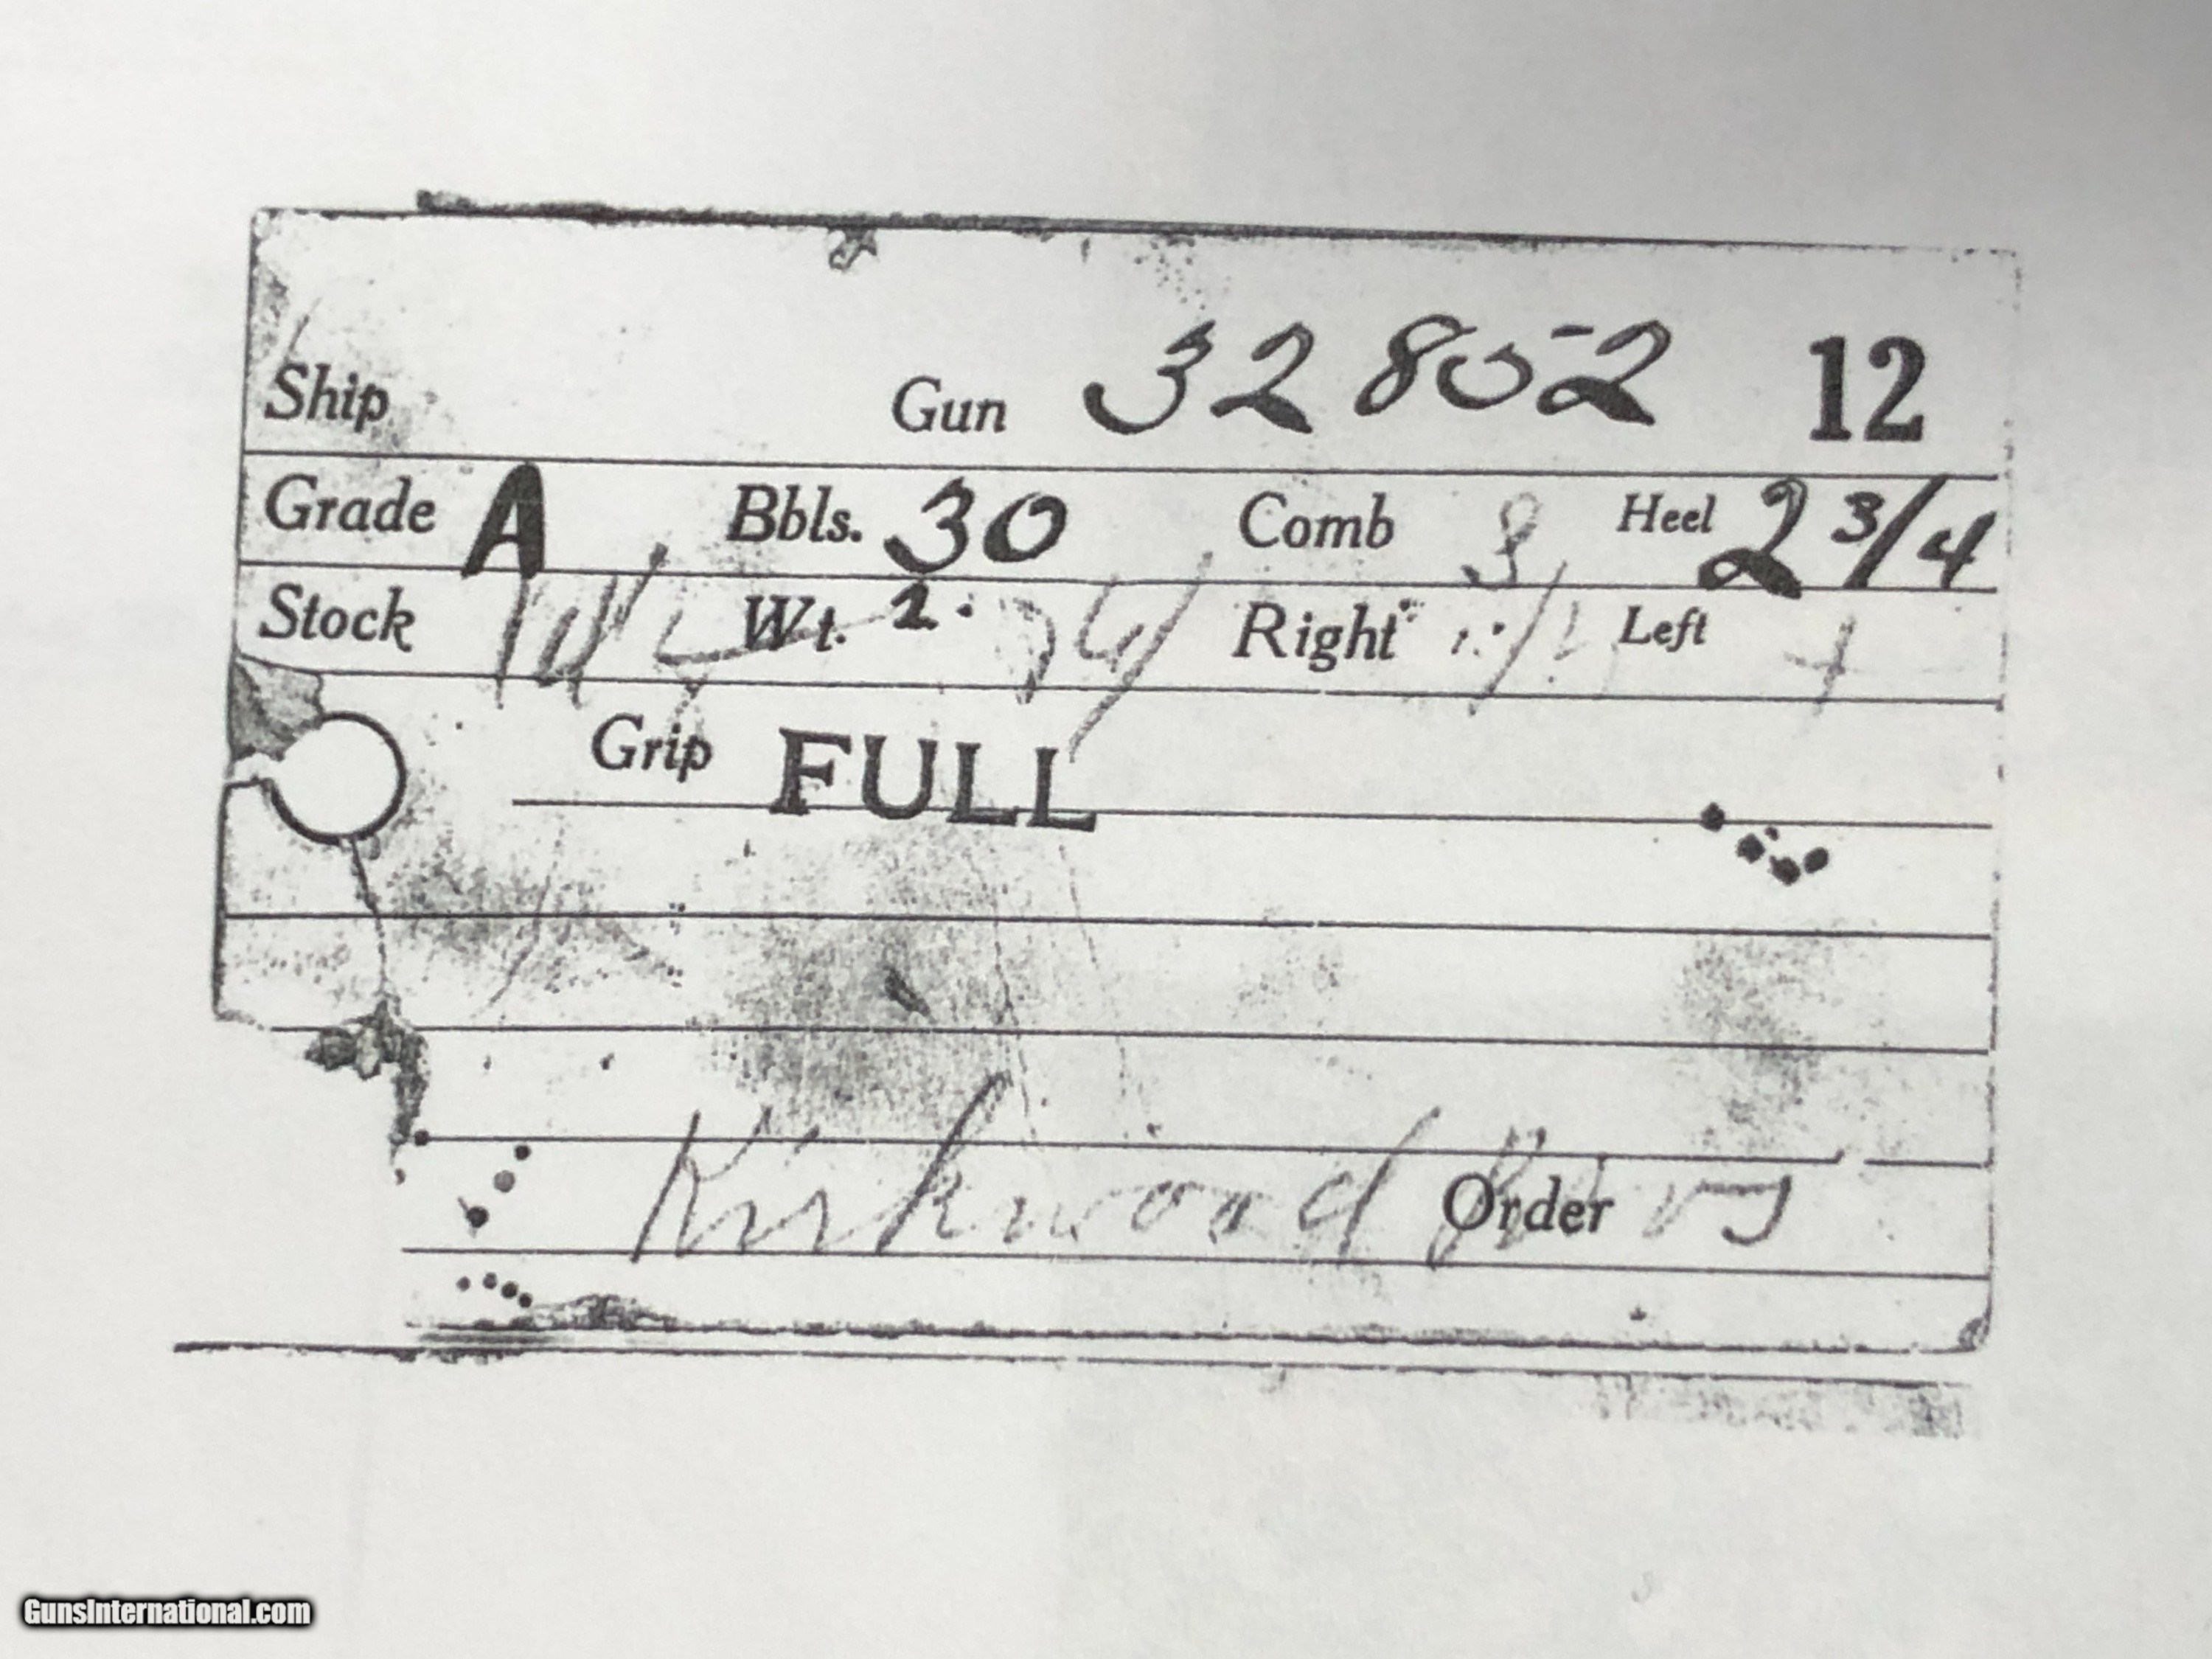 Ship Gun 32852 12
Grade A Bbls. 30 Comb Heel 2 3/4
Stock Wt. Right Left
Grip FULL
Kirkwood Bros Order
GunsInternational.com